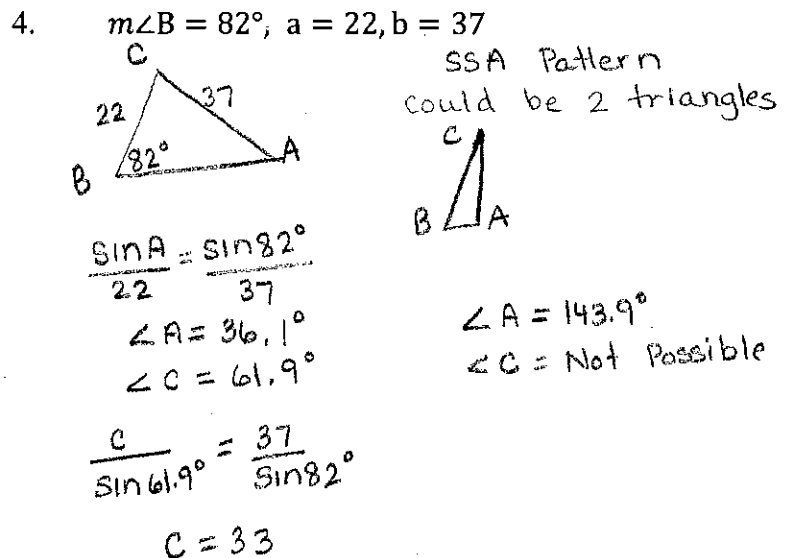 4. m∠B = 82°, a = 22, b = 37
SSA Pattern
could be 2 triangles
C
22
37
B
82°
A
C
B
A
sin A / 22 = sin 82° / 37
∠A = 36.1°
∠C = 61.9°
∠A = 143.9°
∠C = Not Possible
c / sin 61.9° = 37 / sin 82°
c = 33